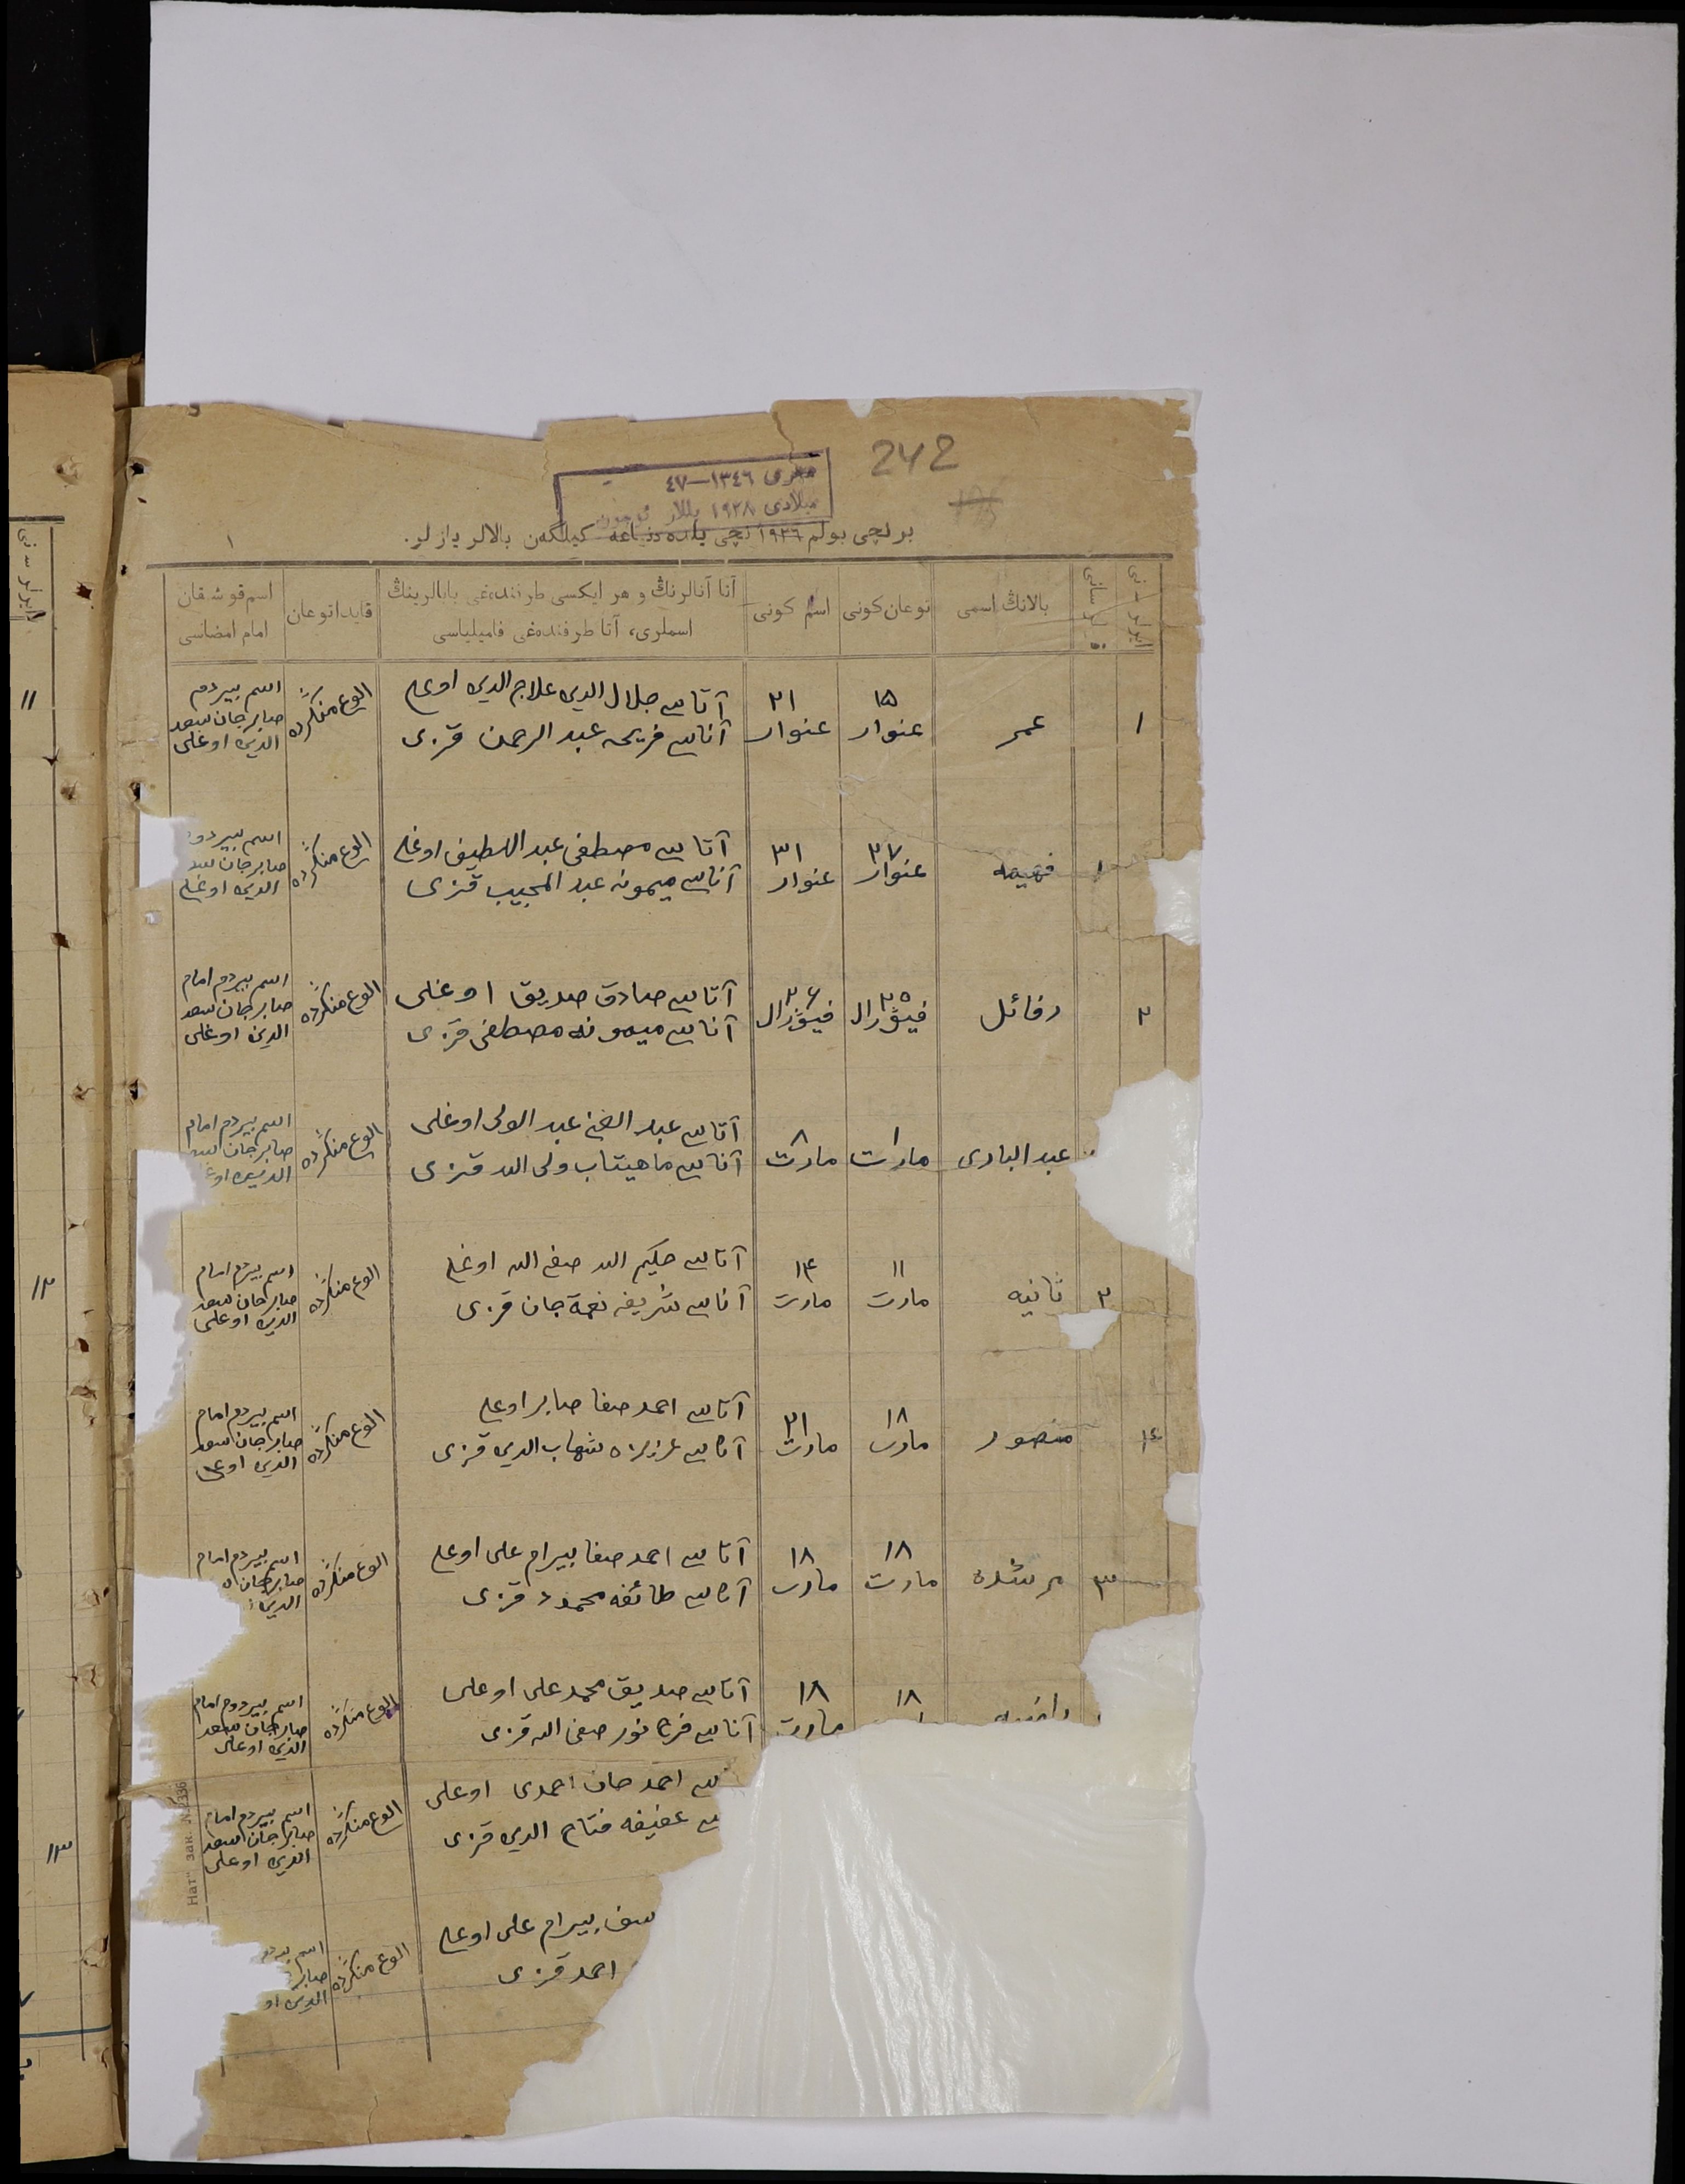 242
هجری ١٣٤٦—٤٧
میلادی ١٩٢٨ یللار
برنچی بولم ١٩٢٦ نچی یلده دنیاغه کیلگەن بالالر یازلر.
١
ایرلر سانی
بالانڭ اسمی
توغان کونی
اسم کونی
آتا آنالرنڭ و هر ایکسی طرفنده‌غی بابالرینڭ
اسملری، آتا طرفنده‌غی فامیلیاسی
قایدا توغان
اسم قوشقان
امام امضاسی
١
عمر
١٥
غنوار
٢١
غنوار
آتاسی جلال الدین علاج الدین اوغلی
آناسی فریحه عبد الرحمن قزی
الوغ منگرده
اسم بیردم
صابر جان سعد
الدین اوغلی
١
فهیمه
٢٧
غنوار
٣١
غنوار
آتاسی مصطفی عبد اللطیف اوغلی
آناسی میمونه عبد المجیب قزی
الوغ منگرده
اسم بیردم
صابر جان سعد
الدین اوغلی
٢
رفائل
٢٥
فیۋرال
٢٦
فیۋرال
آتاسی صادق صدیق اوغلی
آناسی میمونه مصطفی قزی
الوغ منگرده
اسم بیردم امام
صابر جان سعد
الدین اوغلی
عبد الباری
١
مارت
٨
مارت
آتاسی عبد الغنی عبد الولی اوغلی
آناسی ماهیتاب ولی الله قزی
الوغ منگرده
اسم بیردم امام
صابر جان سعد
الدین اوغ
٢
ثانیه
١١
مارت
١٤
مارت
آتاسی حکیم الله صفی الله اوغلی
آناسی شریفه نعمة جان قزی
الوغ منگرده
اسم بیردم امام
صابر جان سعد
الدین اوغلی
٤
منصور
١٨
مارت
٢١
مارت
آتاسی احمد صفا صابر اوغلی
آناسی عزیزه شهاب الدین قزی
الوغ منگرده
اسم بیردم امام
صابر جان سعد
الدین اوغلی
٣
مرشده
١٨
مارت
١٨
مارت
آتاسی احمد صفا بیرام علی اوغلی
آناسی طائفه محمود قزی
الوغ منگرده
اسم بیردم امام
صابر جان
الدین
راضیه
١٨
١٨
مارت
آتاسی صدیق محمد علی اوغلی
آناسی نور صفی الله قزی
الوغ منگرده
اسم بیردم امام
صابر جان سعد
الدین اوغلی
سی احمد جان احمدی اوغلی
سی عفیفه فتاح الدین قزی
الوغ منگرده
اسم بیردم امام
صابر جان سعد
الدین اوغلی
سف بیرام علی اوغلی
احمد قزی
الوغ منگرده
اسم بیرد
صابر
الدین او
Нат" зак. №2336
١١
١٢
١٣